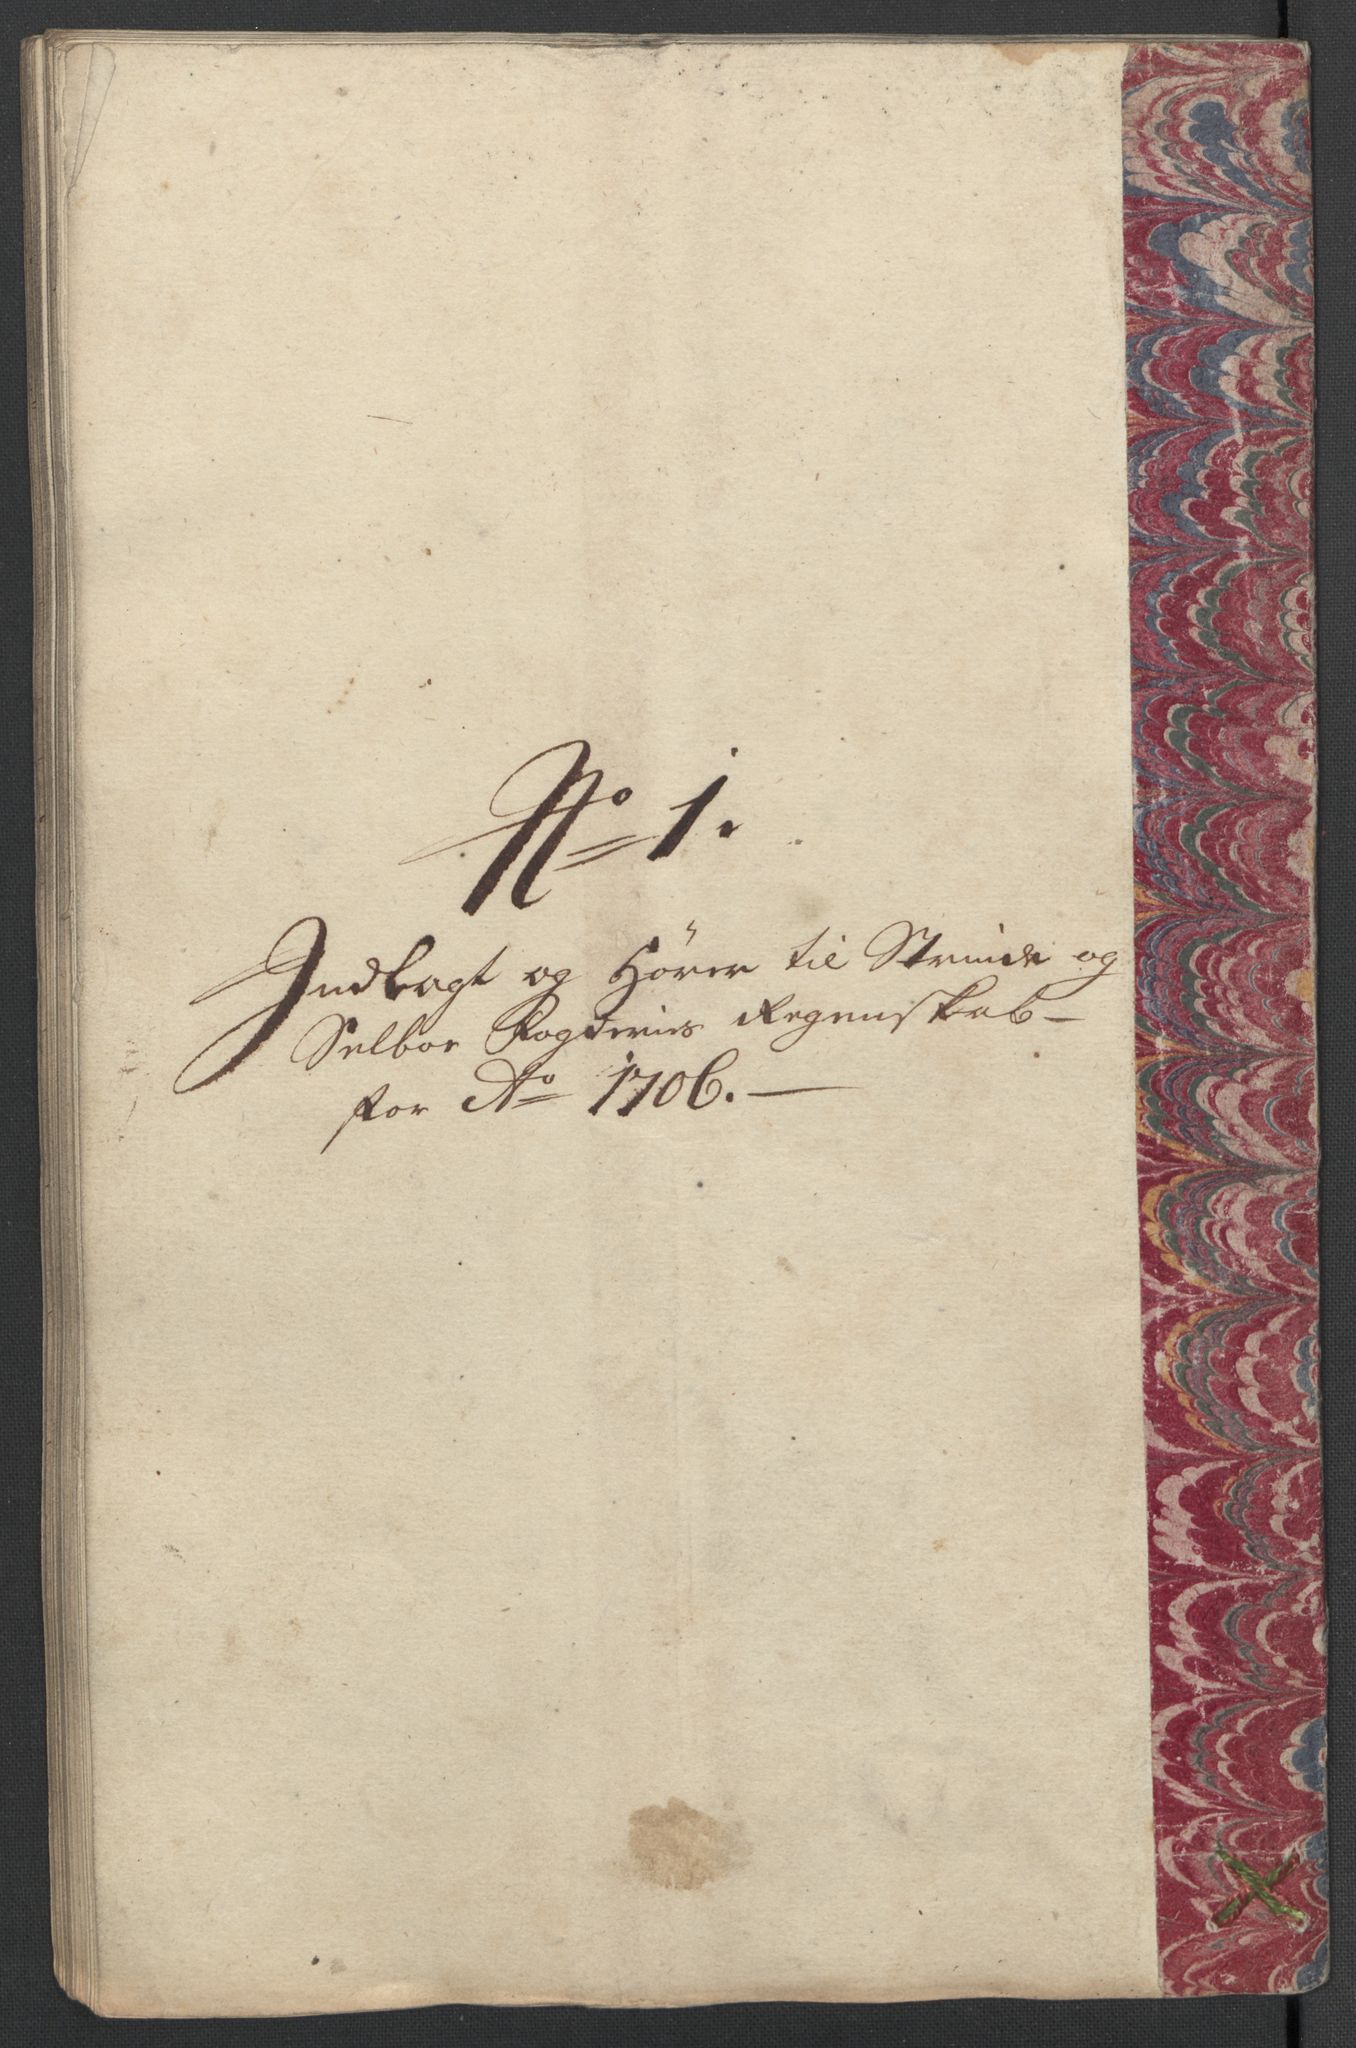 No 1.
Indlagt og Hörer til Strinde og
Selboe Fogderies Regenskab
for Ao 1706.